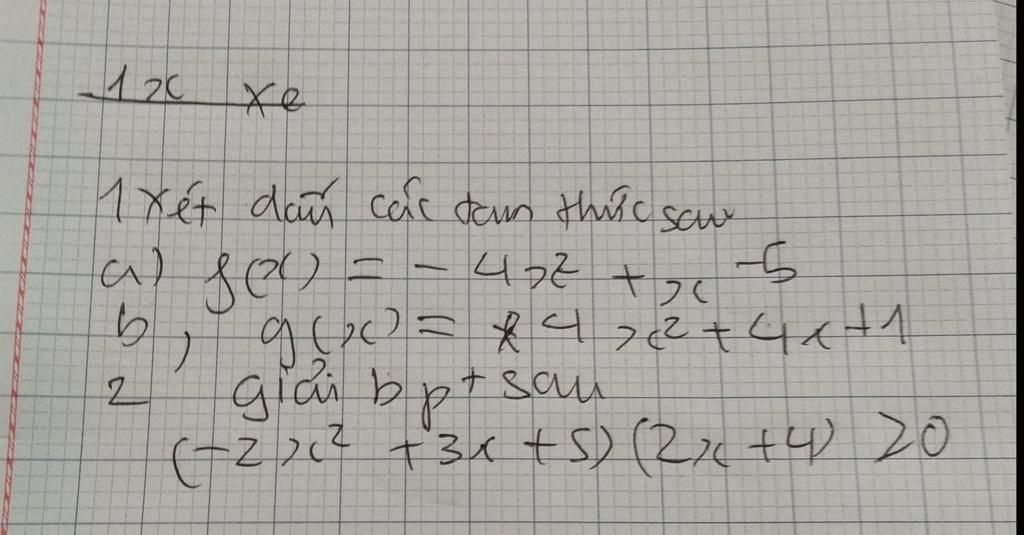 1x xe
1 xét dấu các tam thức sau
a) f(x) = - 4x² + x -5
b, g(x) = 4x² + 4x + 1
2 giải bpt sau
(-2x² + 3x + 5) (2x + 4) ≥ 0